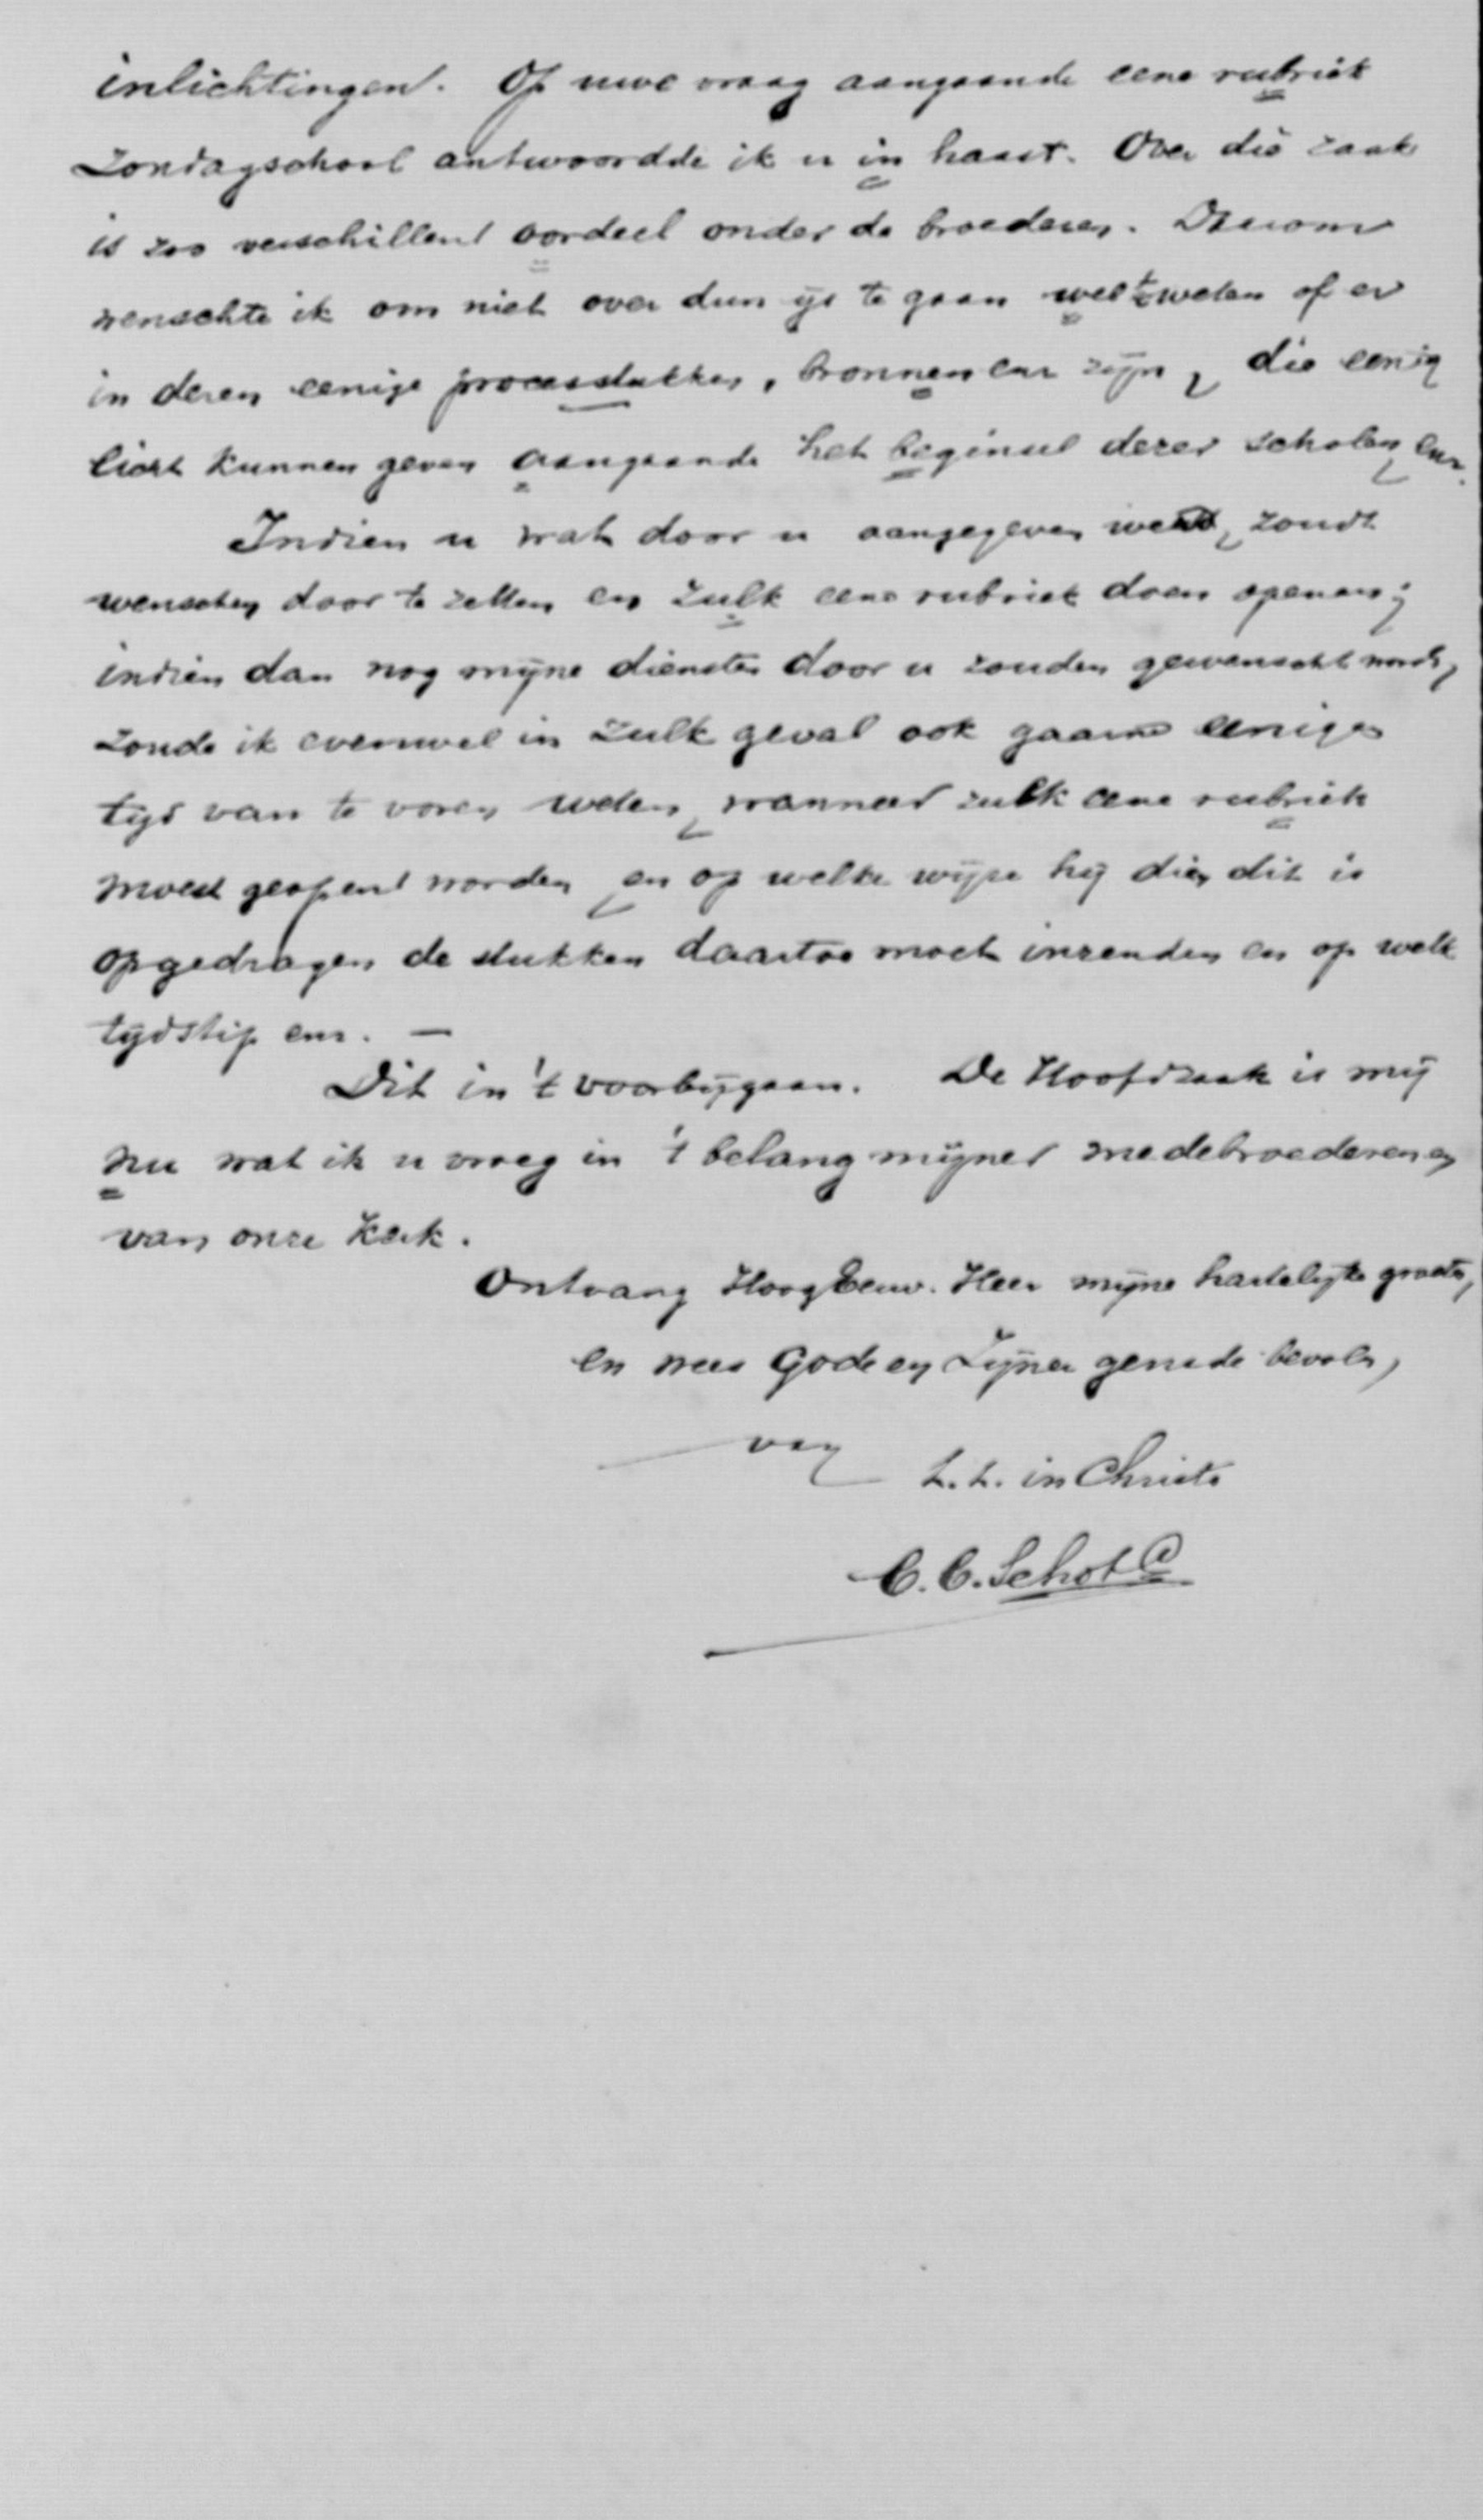 inlichtingen. Op uwe vraag aangaande eene rubriek
Zondagschool antwoordde ik u in haast. Over die zaak
is zoo verschillend oordeel onder de broederen. Daarom
wenschte ik om niet over dun ijs te gaan wel te weten of er
in dezen eenige processtukken, bronnen enz zijn, die eenig
licht kunnen geven aangaande het beginsel dezer scholen, enz.
Indien u wat door u aangegeven werd, zoudt
wenschen door te zetten en zulk eene rubriek doen openen;
indien dan nog mijne diensten door u zouden gewenscht word,
zoude ik evenwel in zulk geval ook gaarne eenigen
tijd van te voren weten, wanneer zulk eene rubriek
moest geopend worden, en op welke wijze hij dien dit is
opgedragen de stukken daartoe moet inzenden en op welk
tijdstip enz. —
Dit in 't voorbijgaan. De Hoofdzaak is mij
nu wat ik u vroeg in 't belang mijner medebroederen en
van onze Kerk.
Ontvang HoogEerw. Heer mijne hartelijke groete,
en wees Gode en Zijner genade bevolen,
van
L. L. in Christo
C. C. Schot